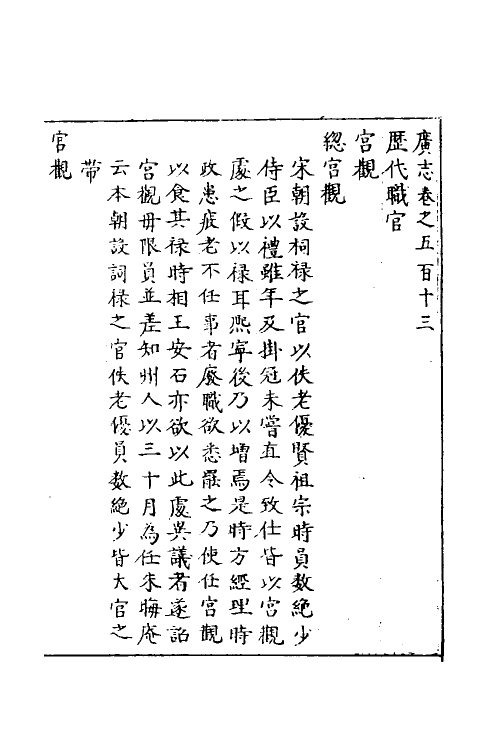 廣志卷之五百十三
歷代職官
宮觀
總宮觀
宋朝設祠禄之官以佚老優賢祖宗時員数絶少
侍臣以禮雖年及掛冠未嘗直令致仕皆以宮觀
處之假以禄耳熙寧後乃以增焉是時方經理時
政患疲老不任事者廢職欲悉罷之乃使任宮觀
以食其禄時相王安石亦欲以此處異議者遂詔
宮觀毋限員並差知州人以三十月為任朱晦庵
云本朝設詞禄之官佚老優員数絶少皆大官之
带
宮觀